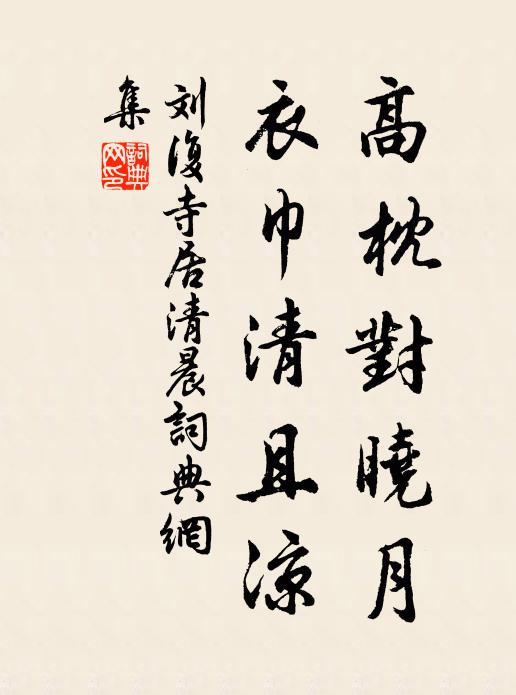 高枕對曉月
衣巾清且涼
刘復寺居清晨詞典網
集
詞典
网印